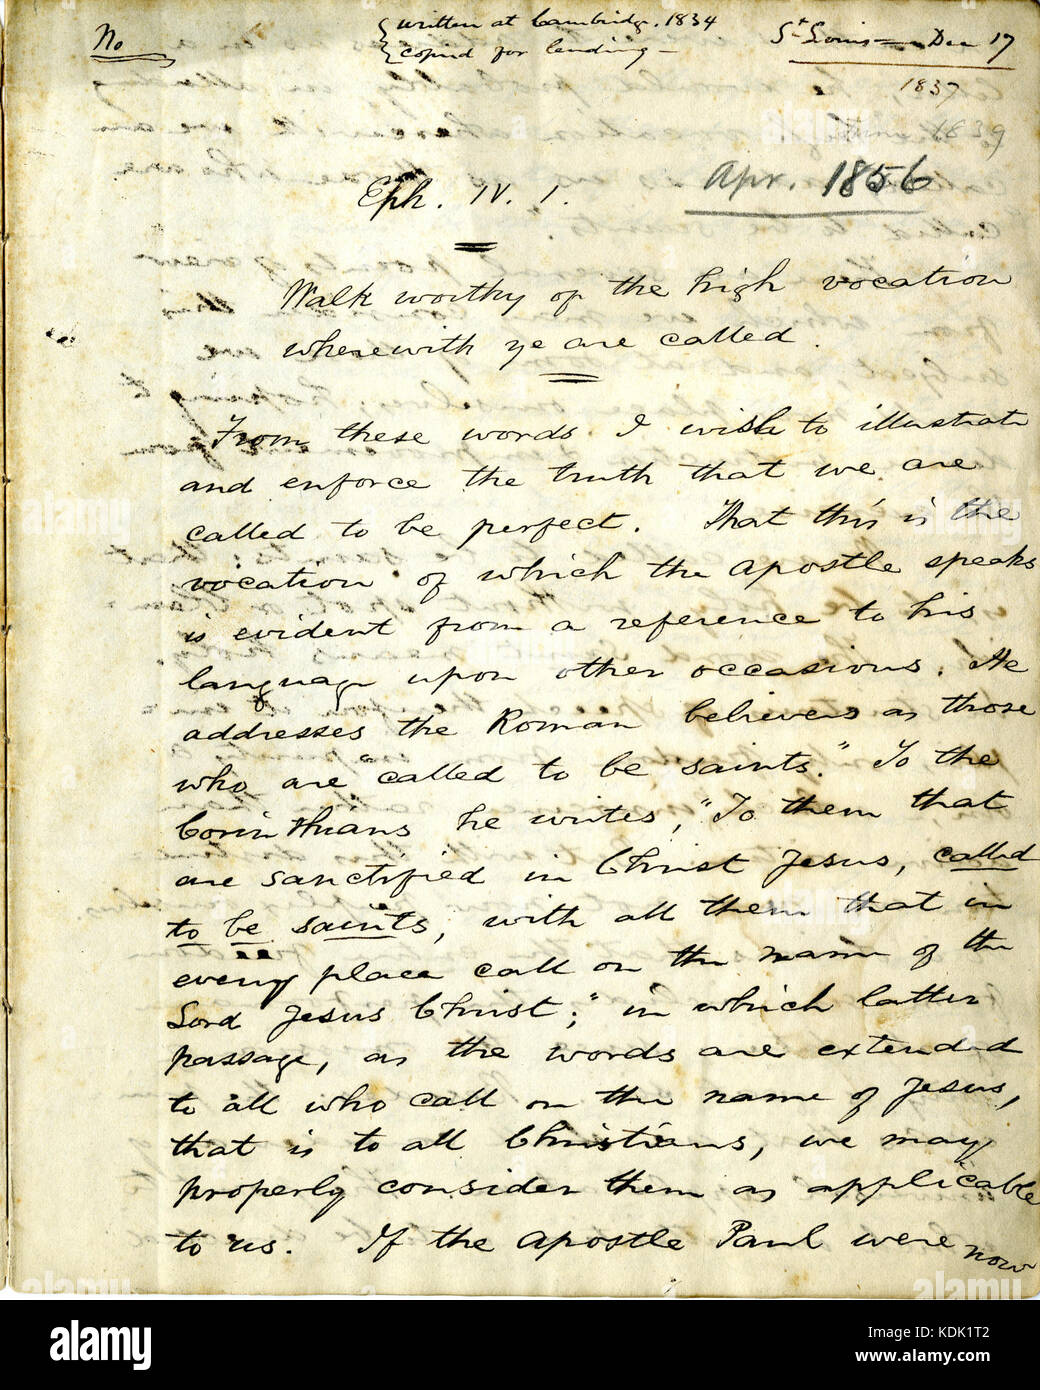 No
written at Cambridge. 1834
copied for lending —
St Louis — Dec 17
1837
June 1839
Apr. 1856
Eph. IV. 1.
Walk worthy of the high vocation
wherewith ye are called.
From these words I wish to illustrate
and enforce the truth that we are
called to be perfect. That this is the
vocation of which the Apostle speaks
is evident from a reference to his
language upon other occasions. He
addresses the Roman believers as those
who are "called to be saints." To the
Corinthians he writes, "To them that
are sanctified in Christ Jesus, called
to be saints, with all them that in
every place call on the name of the
Lord Jesus Christ;" in which latter
passage, as the words are extended
to all who call on the name of Jesus,
that is to all Christians, we may
properly consider them as applicable
to us. If the apostle Paul were now
alamy
Image ID: KDK1T2
www.alamy.com